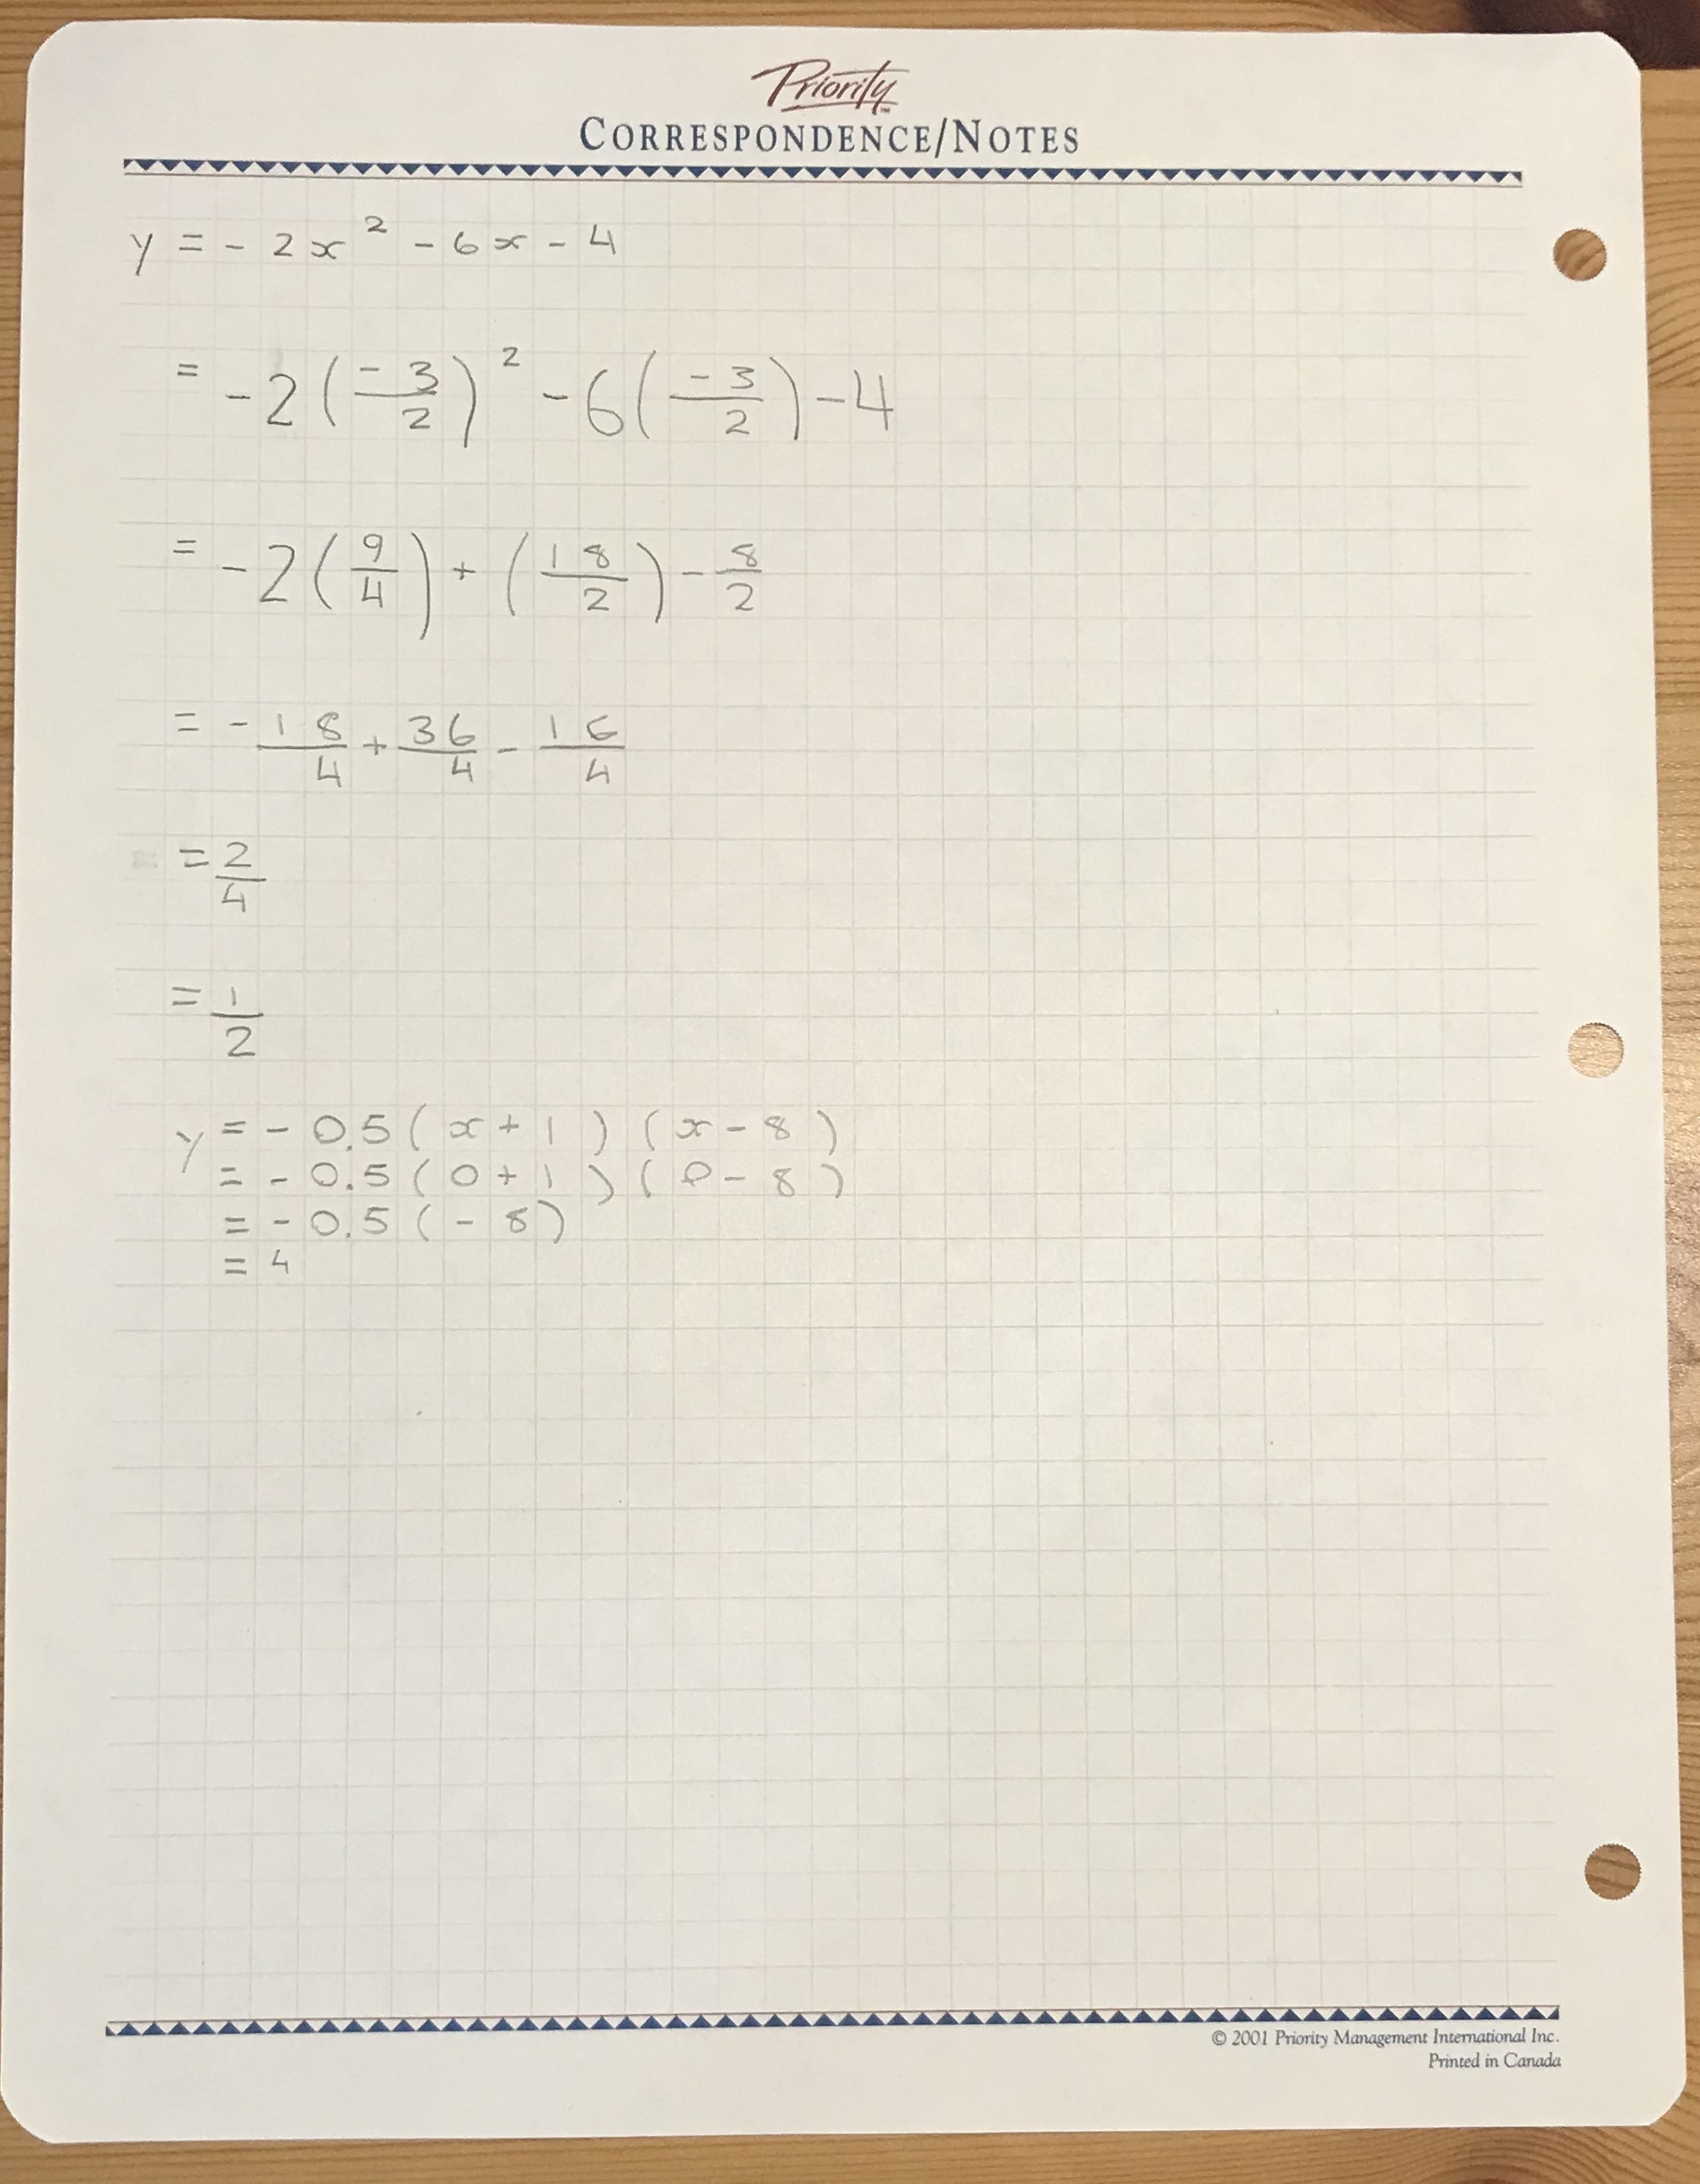 Priority™
CORRESPONDENCE/NOTES
y = - 2x² - 6x - 4
= -2(-3/2)² - 6(-3/2) - 4
= -2(9/4) + (18/2) - 8/2
= - 18/4 + 36/4 - 16/4
= 2/4
= 1/2
y = - 0.5(x + 1)(x - 8)
= - 0.5(0 + 1)(0 - 8)
= - 0.5(- 8)
= 4
© 2001 Priority Management International Inc.
Printed in Canada